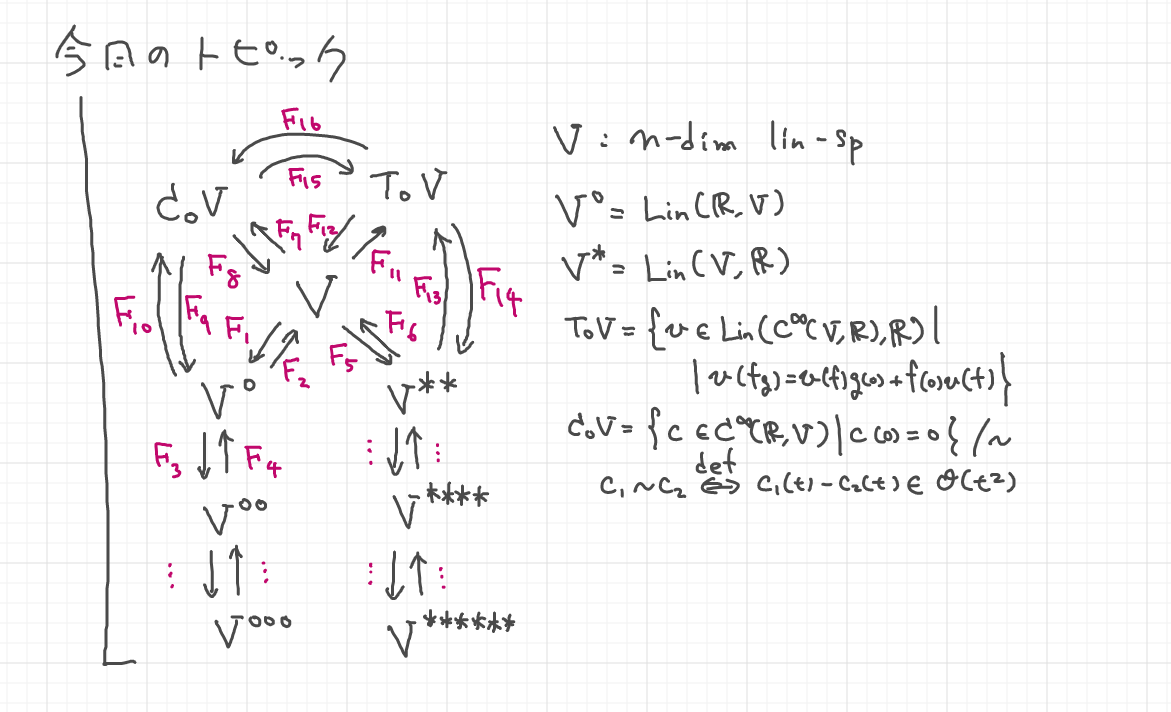 今日のトピック
F₁₆
F₁₅
C₀V
T₀V
F₇ F₁₂
F₈
F₁₁
V
F₁₀
F₉
F₁₃
F₁₄
F₁
F₂
F₅
F₆
V°
V**
F₃
F₄
⋮
⋮
V°°
V****
⋮
⋮
⋮
⋮
V°°°
V******
V : n-dim lin-sp
V° = Lin(ℝ, V)
V* = Lin(V, ℝ)
T₀V = { v ∈ Lin(C^∞(V, ℝ), ℝ) |
| v(fg) = v(f)g(0) + f(0)v(f) }
C₀V = { c ∈ C^∞(ℝ, V) | c(0) = 0 { / ~
c₁ ~ c₂ def⇔ c₁(t) - c₂(t) ∈ O(t²)